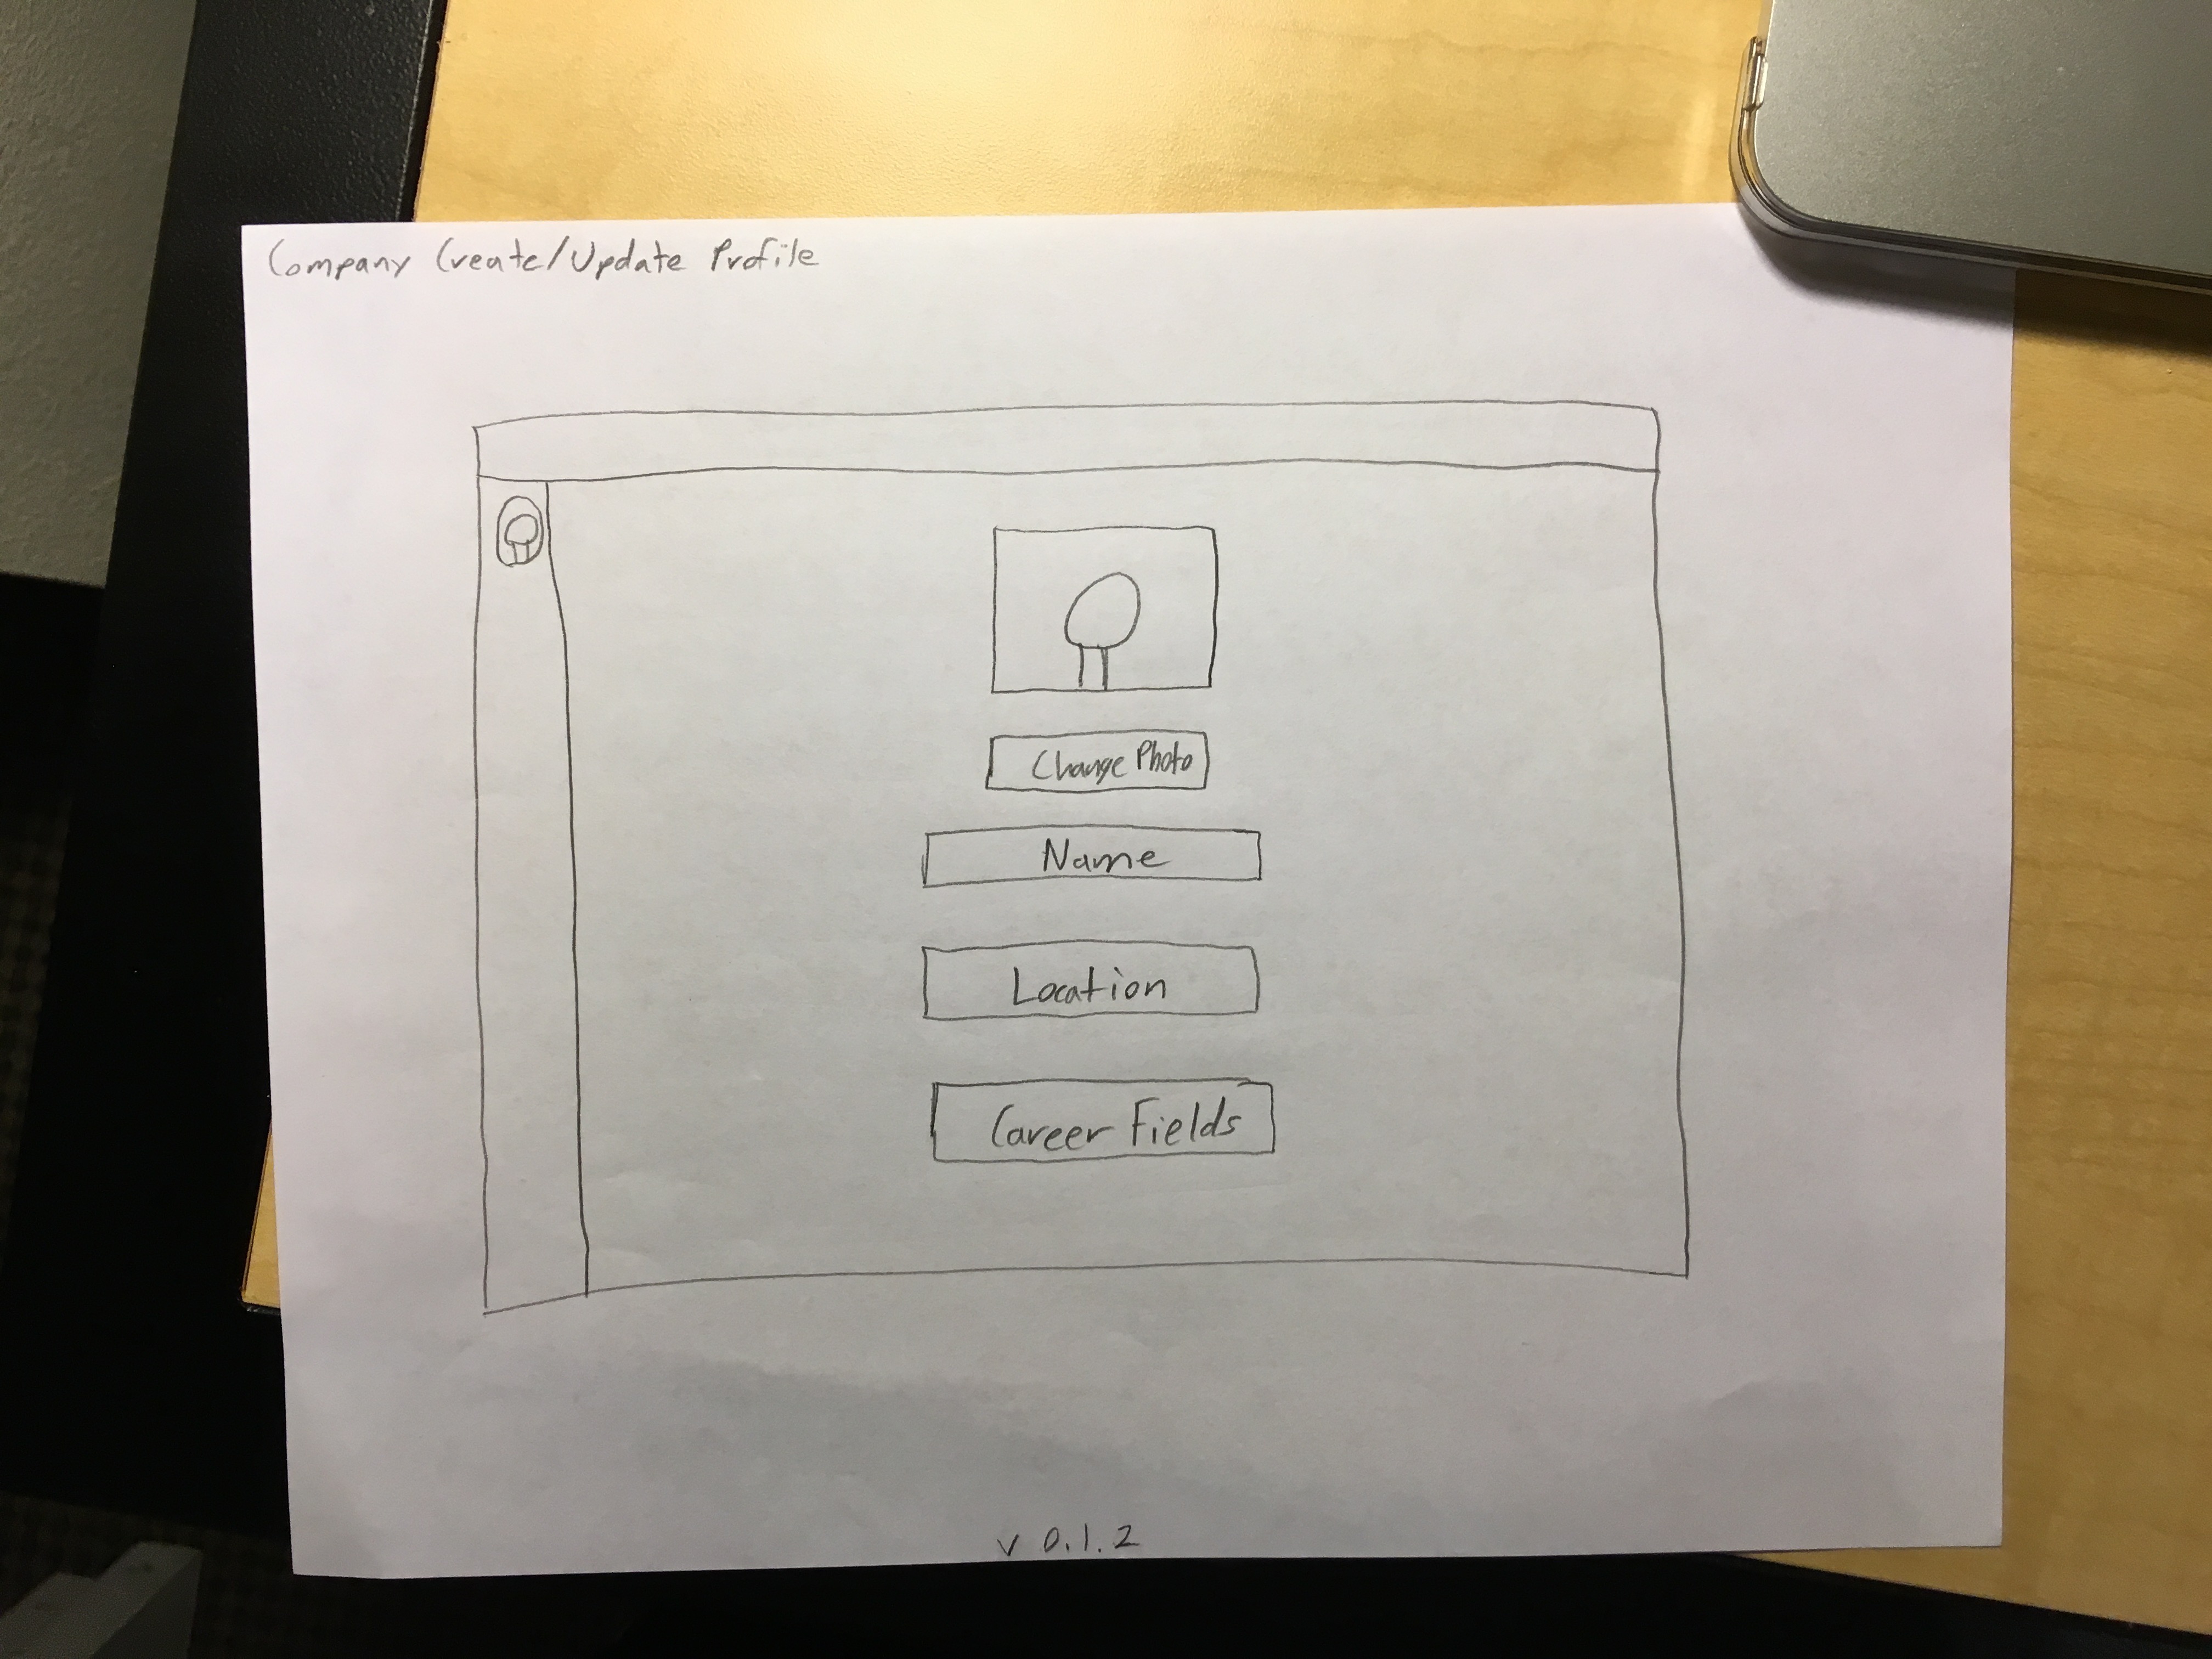 Company Create/Update Profile
Change Photo
Name
Location
Career Fields
v 0.1.2